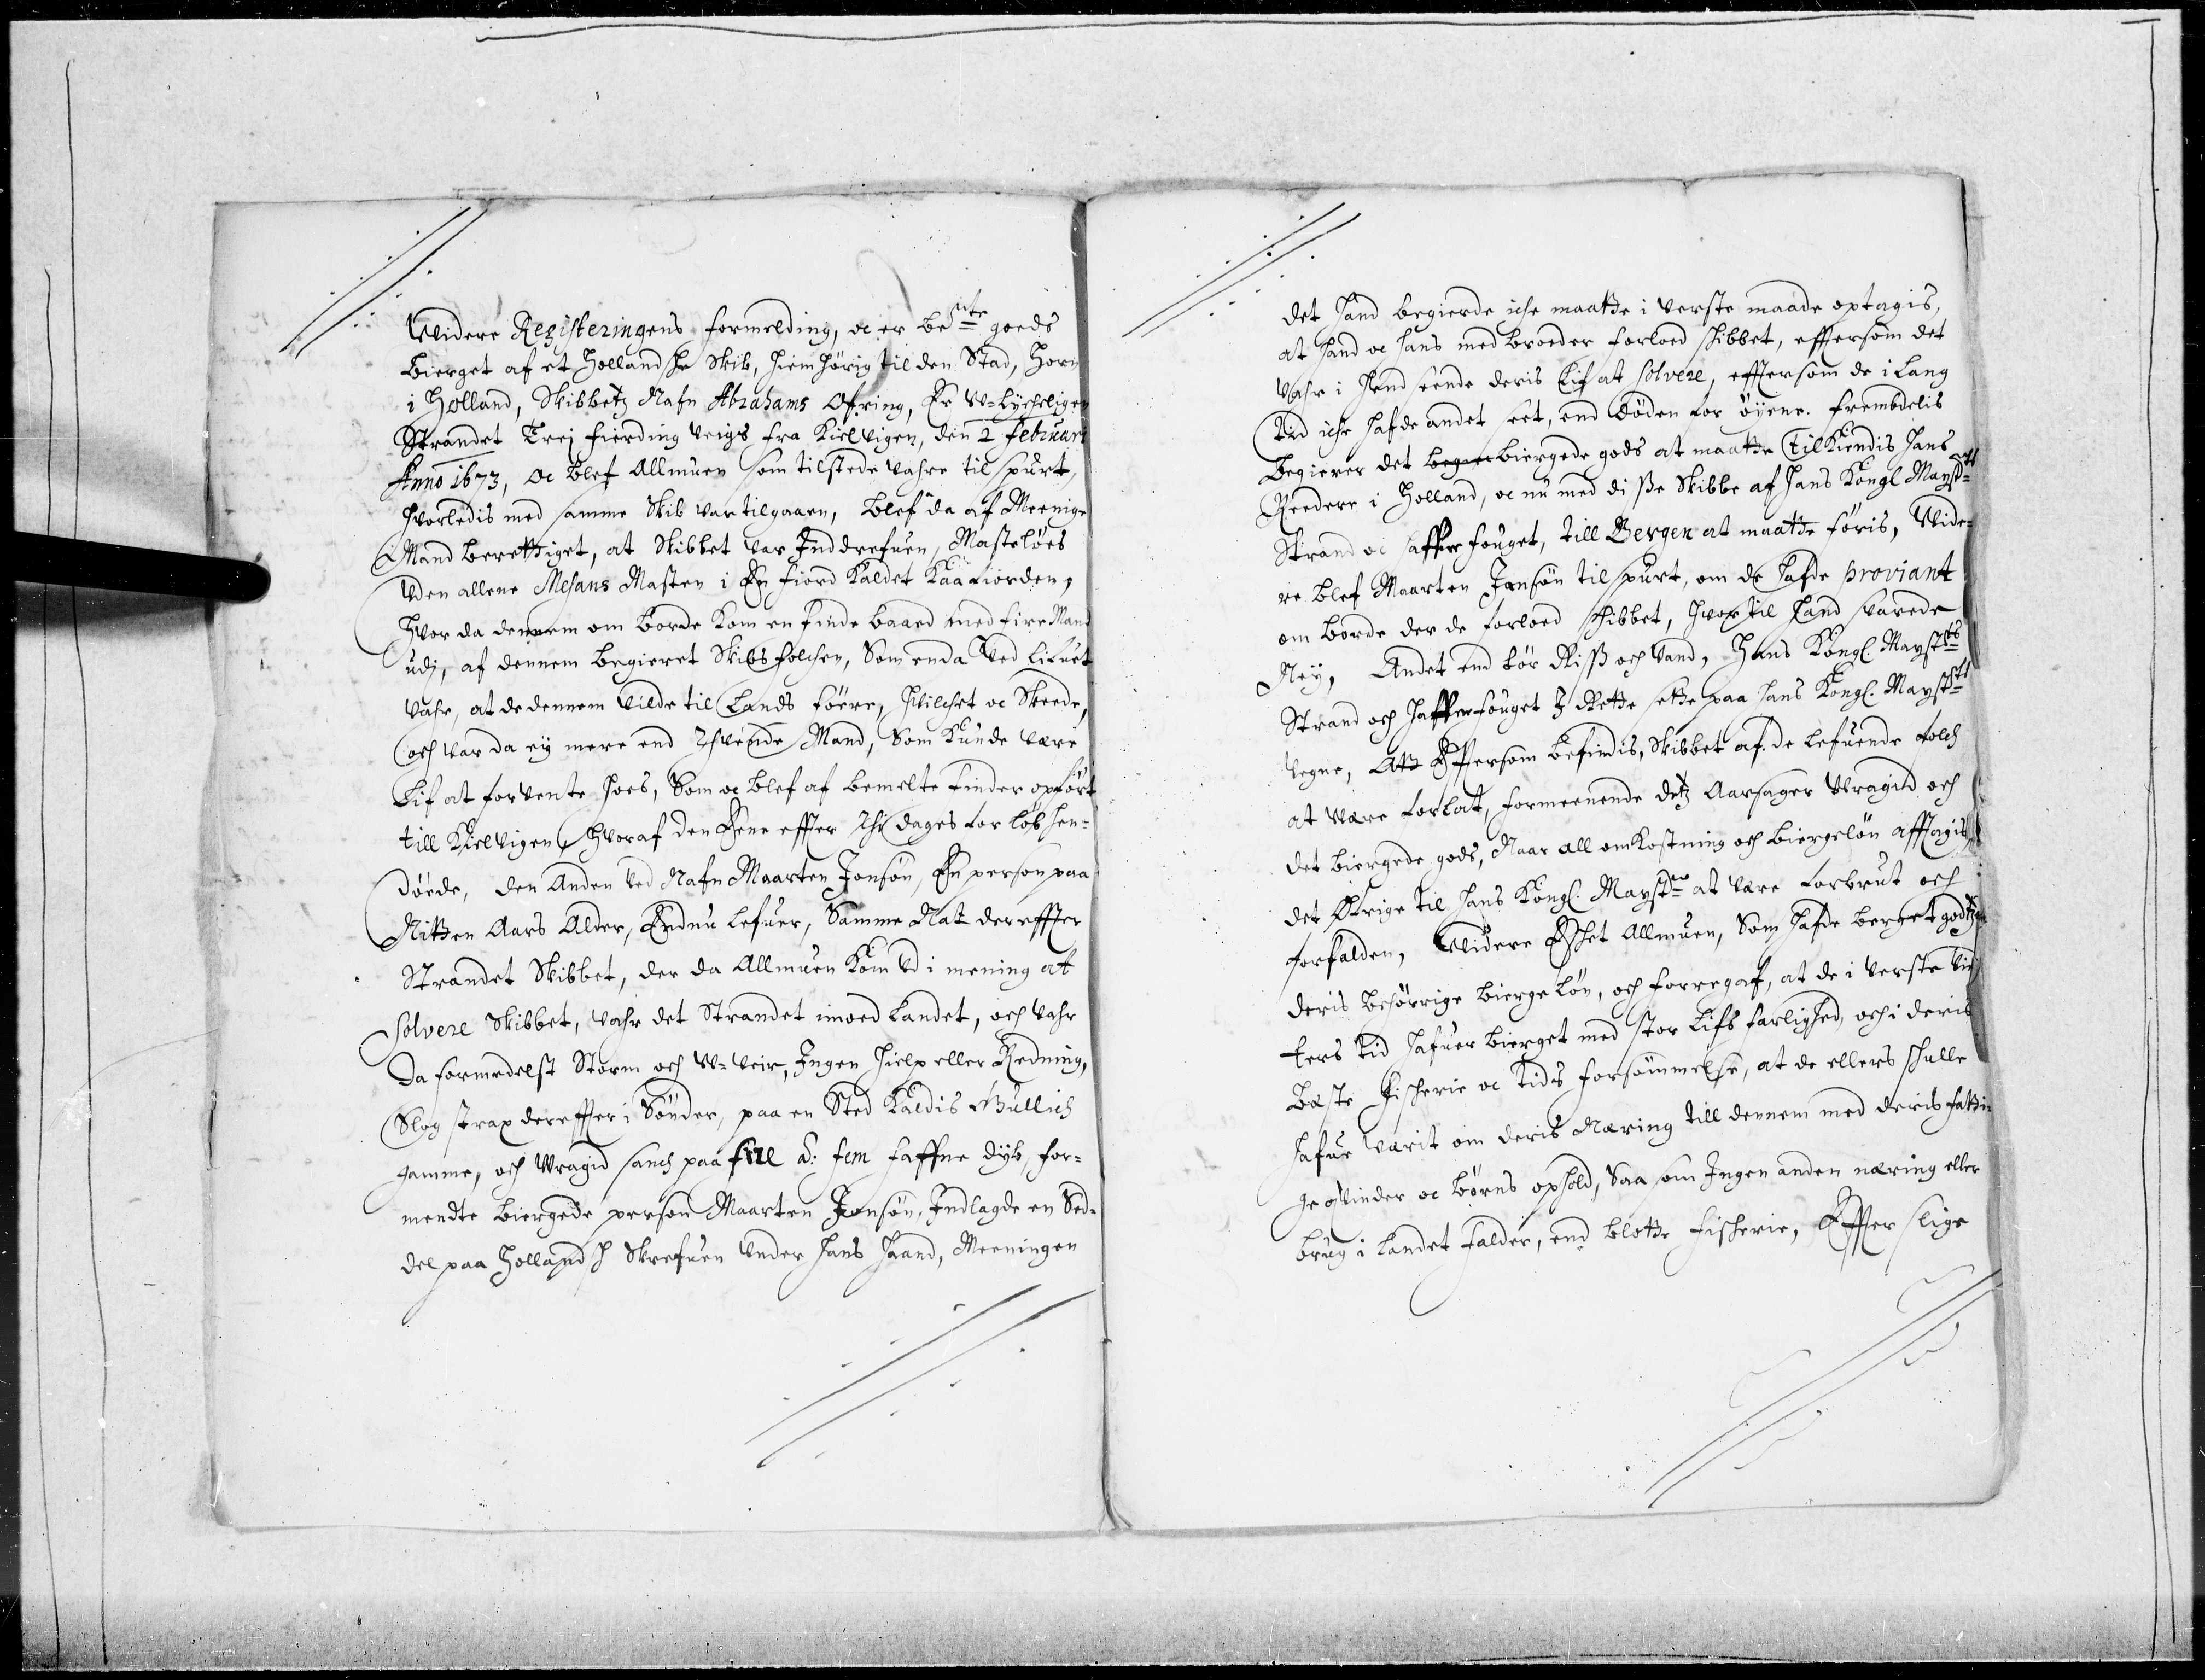 Widere Registeringens formelding, oc er be:ute goeds
bierget af et Hollandske Skib, hiemhörig til den Stad, Horn
i Holland, Skibbetz Nafn Abrahams Ofring, Er W=lychelligen
Strandet Trej fierding veigs fra Kielvigen, den 2 Februari
Anno 1673, Oc blef Allmuen som tilstede vahre tilspurt,
hvorledis med samme Skib var tilgaaen, blef da af Meenige
Mand berettiget, at Skibbet var Inddrefuen, Masteløes
Uden allene Mesans Masten i En fiord Kaldet Kaafiorden,
hvor da dennem om borde Kom en Finde baaed med fire Mand
udj, af dennem begieret Skibs folchen, Som enda Ved Lifuet
vahr, at de dennem vilde til Lands föere, Hvilchet oc Skeede,
och var da ey mere end Thvende Mand, Som Kunde være
Lif at forvente hoes, Som oc blef af bemelte Finder opført
till Kielvigen, hvoraf den Eene effter Thi dages forløb hen=
döede, den Anden ved Nafn Maarten Jonsøn, En person paa
Nitten Aars Alder, Endnu lefuer, Samme Nat dereffter
Strandet Skibbet, der da Allmuen Kom Ud i mening at
solvere Skibbet, vahr det Strandet imoed Landet, och vahr
da formedelst Storm och W=veir, Ingen hielp eller Redning,
Slog strax dereffter i Sönder, paa en Sted Kaldis Gullich
hamme, och Wragid sanch paa fire á: fem faffne dyb, for=
mendte biergede person Maarten Jonsøn, Indlagde en Sed=
del paa Hollandsk Skrefuen under hans haand, Meeningen
det hand begierde iche maatte i verste maade optagis,
at hand oc hans medbroeder forloed schibbet, effersom det
vahr i henseende deris Lif at solvere, effersom de i lang
tid iche hafde andet seet, end Döden for öyene. Frembdelis
begierer det beger biergede gods at maatte tilkiendis hans
Reedere i Holland, oc nu med di sße Skibbe af hans Kongl Mayst:tz
Strand oc haffere fouget, till Bergen at maatte føris, Wide=
re blef Maarten Jonsøn tilspurt, om de hafde proviant
om borde der de forloed schibbet, hvortil hand svarede
Ney, Andet end tör Riss och Vand, Hans Kongl. Mayst:ts
Strand och haffere fouget J Rette sette paa hans Kongl. Mayst:ts
Vegne, Att Effersom befindis, Skibbet af de lefuende folch
at være forlat, formeenende detz Aarsager Wragid och
det biergede gods, Naar all omkostning och biergeløn afftagis,
det Øfrige til hans Kongl. Mayst:tt at være forbrut och
forfalden, Widere Eschet Allmuen, Som hafde berget godtzen
deris behørrige bierge Løn, och forregaf, at de i verste vin
ters tid hafuer bierget med stor Lifs farlighed, och i deris
beste Fischerie oc Tids forsömmelse, at de ellers schulle
hafue værit om deris Næring till dennem med deris fatti=
ge qvinder oc børns ophold, Saa som Ingen anden næring eller
brug i landet falder, end blotte fischerie, Effter slige